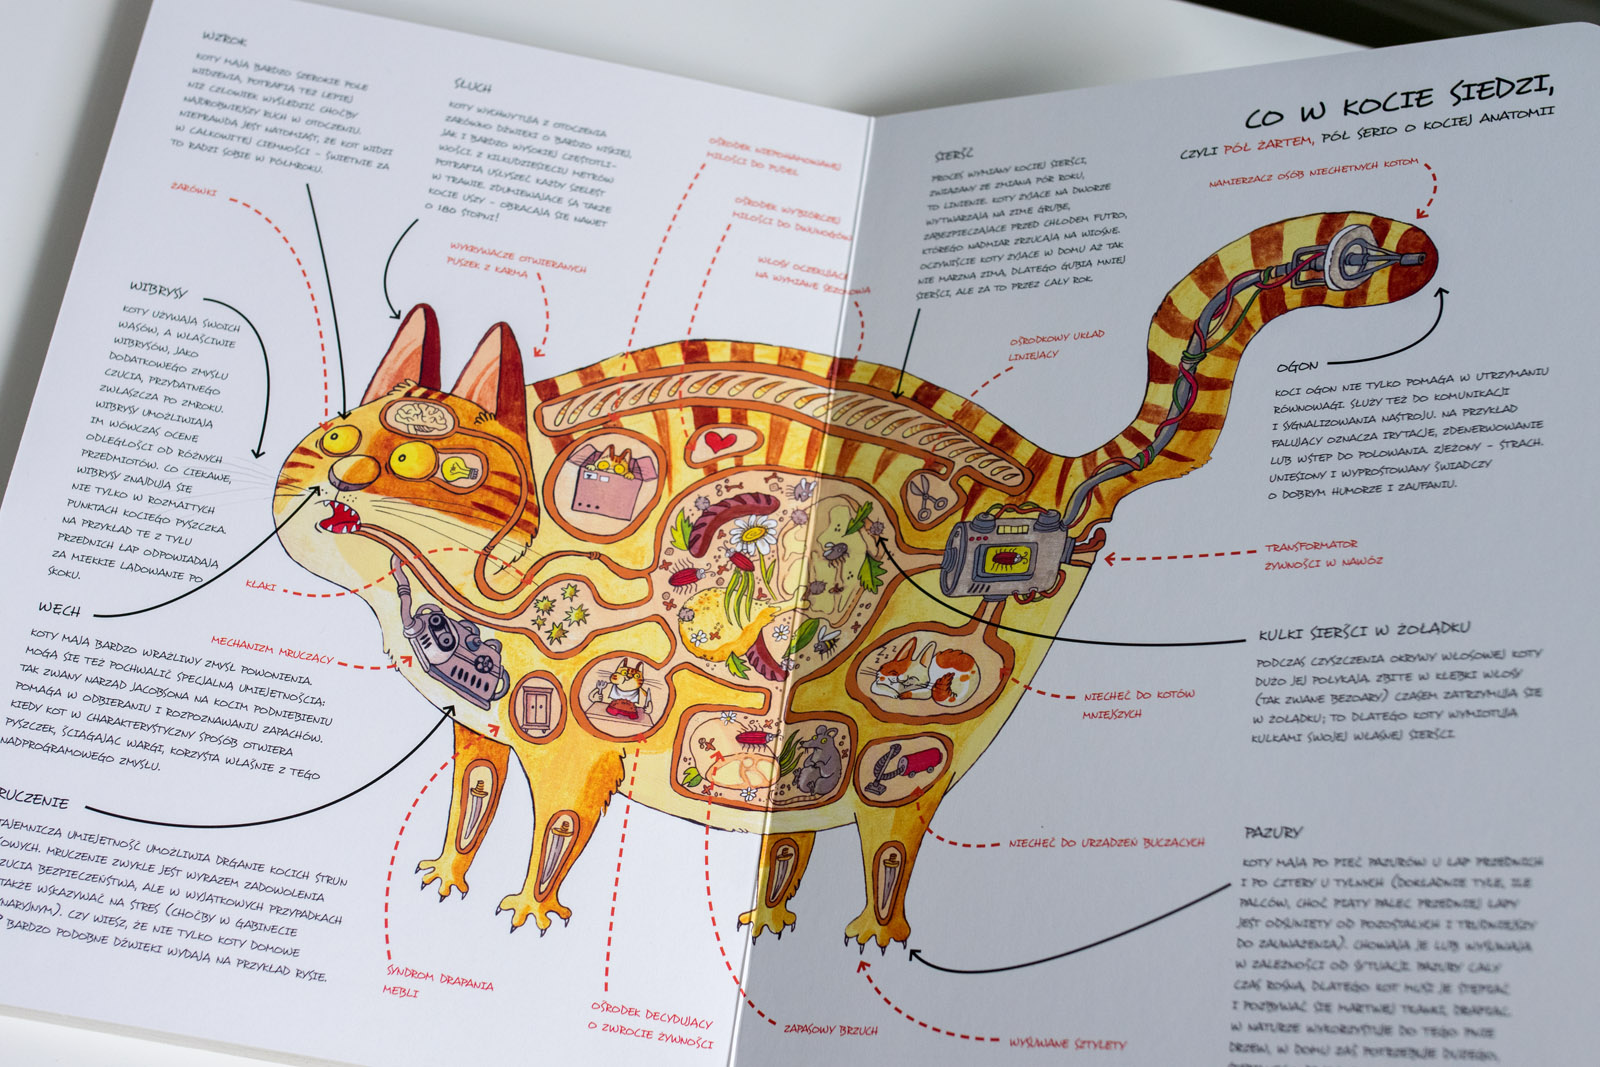 WZROK
KOTY MAJĄ BARDZO SZEROKIE POLE
WIDZENIA, POTRAFIĄ TEŻ LEPIEJ
NIŻ CZŁOWIEK WYŚLEDZIĆ CHOĆBY
NAJDROBNIEJSZY RUCH W OTOCZENIU.
NIEPRAWDĄ JEST NATOMIAST, ŻE KOT WIDZI
W CAŁKOWITEJ CIEMNOŚCI – ŚWIETNIE ZA
TO RADZI SOBIE W PÓŁMROKU.
ŻARÓWKI
SŁUCH
KOTY WYCHWYTUJĄ Z OTOCZENIA
ZARÓWNO DŹWIĘKI O BARDZO NISKIEJ,
JAK I BARDZO WYSOKIEJ CZĘSTOTLI-
WOŚCI. Z KILKUDZIESIĘCIU METRÓW
POTRAFIĄ USŁYSZEĆ KAŻDY SZELEST
W TRAWIE. ZDUMIEWAJĄCE SĄ TAKŻE
KOCIE USZY – OBRACAJĄ SIĘ NAWET
O 180 STOPNI!
WYKRYWACZE OTWIERANYCH
PUSZEK Z KARMĄ
OŚRODEK NIEPOHAMOWANEJ
MIŁOŚCI DO PUDEŁ
OŚRODEK WYBIÓRCZEJ
MIŁOŚCI DO DWUNOGÓW
WŁOSY OCZEKUJĄCE
NA WYMIANĘ SEZONOWĄ
WIBRYSY
KOTY UŻYWAJĄ SWOICH
WĄSÓW, A WŁAŚCIWIE
WIBRYSÓW, JAKO
DODATKOWEGO ZMYSŁU
CZUCIA, PRZYDATNEGO
ZWŁASZCZA PO ZMROKU.
WIBRYSY UMOŻLIWIAJĄ
IM WÓWCZAS OCENĘ
ODLEGŁOŚCI OD RÓŻNYCH
PRZEDMIOTÓW. CO CIEKAWE,
WIBRYSY ZNAJDUJĄ SIĘ
NIE TYLKO W ROZMAITYCH
PUNKTACH KOCIEGO PYSZCZKA.
NA PRZYKŁAD TE Z TYŁU
PRZEDNICH ŁAP ODPOWIADAJĄ
ZA MIĘKKIE LĄDOWANIE PO
SKOKU.
KŁAKI
WĘCH
KOTY MAJĄ BARDZO WRAŻLIWY ZMYSŁ POWONIENIA.
MOGĄ SIĘ TEŻ POCHWALIĆ SPECJALNĄ UMIEJĘTNOŚCIĄ:
TAK ZWANY NARZĄD JACOBSONA NA KOCIM PODNIEBIENIU
POMAGA W ODBIERANIU I ROZPOZNAWANIU ZAPACHÓW.
KIEDY KOT W CHARAKTERYSTYCZNY SPOSÓB OTWIERA
PYSZCZEK, ŚCIĄGAJĄC WARGI, KORZYSTA WŁAŚNIE Z TEGO
NADPROGRAMOWEGO ZMYSŁU.
MECHANIZM MRUCZĄCY
RUCZENIE
TAJEMNICZA UMIEJĘTNOŚĆ UMOŻLIWIA DRGANIE KOCICH STRUN
OWYCH. MRUCZENIE ZWYKLE JEST WYRAZEM ZADOWOLENIA
ZUCIA BEZPIECZEŃSTWA, ALE W WYJĄTKOWYCH PRZYPADKACH
TAKŻE WSKAZYWAĆ NA STRES (CHOĆBY W GABINECIE
NARYJNYM). CZY WIESZ, ŻE NIE TYLKO KOTY DOMOWE
BARDZO PODOBNE DŹWIĘKI WYDAJĄ NA PRZYKŁAD RYSIE.
SYNDROM DRAPANIA
MEBLI
OŚRODEK DECYDUJĄCY
O ZWROCIE ŻYWNOŚCI
CO W KOCIE SIEDZI,
CZYLI PÓŁ ŻARTEM, PÓŁ SERIO O KOCIEJ ANATOMII
NAMIERZACZ OSÓB NIECHĘTNYCH KOTOM
SIERŚĆ
PROCES WYMIANY KOCIEJ SIERŚCI,
ZWIĄZANY ZE ZMIANĄ PÓR ROKU,
TO LINIENIE. KOTY ŻYJĄCE NA DWORZE
WYTWARZAJĄ NA ZIMĘ GRUBE,
ZABEZPIECZAJĄCE PRZED CHŁODEM FUTRO,
KTÓREGO NADMIAR ZRZUCAJĄ NA WIOSNĘ.
OCZYWIŚCIE KOTY ŻYJĄCE W DOMU AŻ TAK
NIE MARZNĄ ZIMĄ, DLATEGO GUBIĄ MNIEJ
SIERŚCI, ALE ZA TO PRZEZ CAŁY ROK.
OŚRODKOWY UKŁAD
LINIEJĄCY
OGON
KOCI OGON NIE TYLKO POMAGA W UTRZYMANIU
RÓWNOWAGI. SŁUŻY TEŻ DO KOMUNIKACJI
I SYGNALIZOWANIA NASTROJU. NA PRZYKŁAD
FALUJĄCY OZNACZA IRYTACJĘ, ZDENERWOWANIE
LUB WSTĘP DO POLOWANIA. ZJEŻONY – STRACH.
UNIESIONY I WYPROSTOWANY ŚWIADCZY
O DOBRYM HUMORZE I ZAUFANIU.
TRANSFORMATOR
ŻYWNOŚCI W NAWÓZ
KULKI SIERŚCI W ŻOŁĄDKU
PODCZAS CZYSZCZENIA OKRYWY WŁOSOWEJ KOTY
DUŻO JEJ POŁYKAJĄ. ZBITE W KŁĘBKI WŁOSY
(TAK ZWANE BEZOARY) CZASEM ZATRZYMUJĄ SIĘ
W ŻOŁĄDKU; TO DLATEGO KOTY WYMIOTUJĄ
KULKAMI SWOJEJ WŁASNEJ SIERŚCI.
NIECHĘĆ DO KOTÓW
MNIEJSZYCH
NIECHĘĆ DO URZĄDZEŃ BUCZĄCYCH
PAZURY
KOTY MAJĄ PO PIĘĆ PAZURÓW U ŁAP PRZEDNICH
I PO CZTERY U TYLNYCH (DOKŁADNIE TYLE, ILE
PALCÓW, CHOĆ PIĄTY PALEC PRZEDNIEJ ŁAPY
JEST ODSUNIĘTY OD POZOSTAŁYCH I TRUDNIEJSZY
DO ZAUWAŻENIA). CHOWAJĄ JE LUB WYSUWAJĄ
W ZALEŻNOŚCI OD SYTUACJI. PAZURY CAŁY
CZAS ROSNĄ, DLATEGO KOT MUSI JE STĘPIAĆ
I POZBYWAĆ SIĘ MARTWEJ TKANKI, DRAPIĄC.
W NATURZE WYKORZYSTUJE DO TEGO PNIE
DRZEW, W DOMU ZAŚ POTRZEBUJE DUŻEGO,
ZAPASOWY BRZUCH
WYSUWANE SZTYLETY